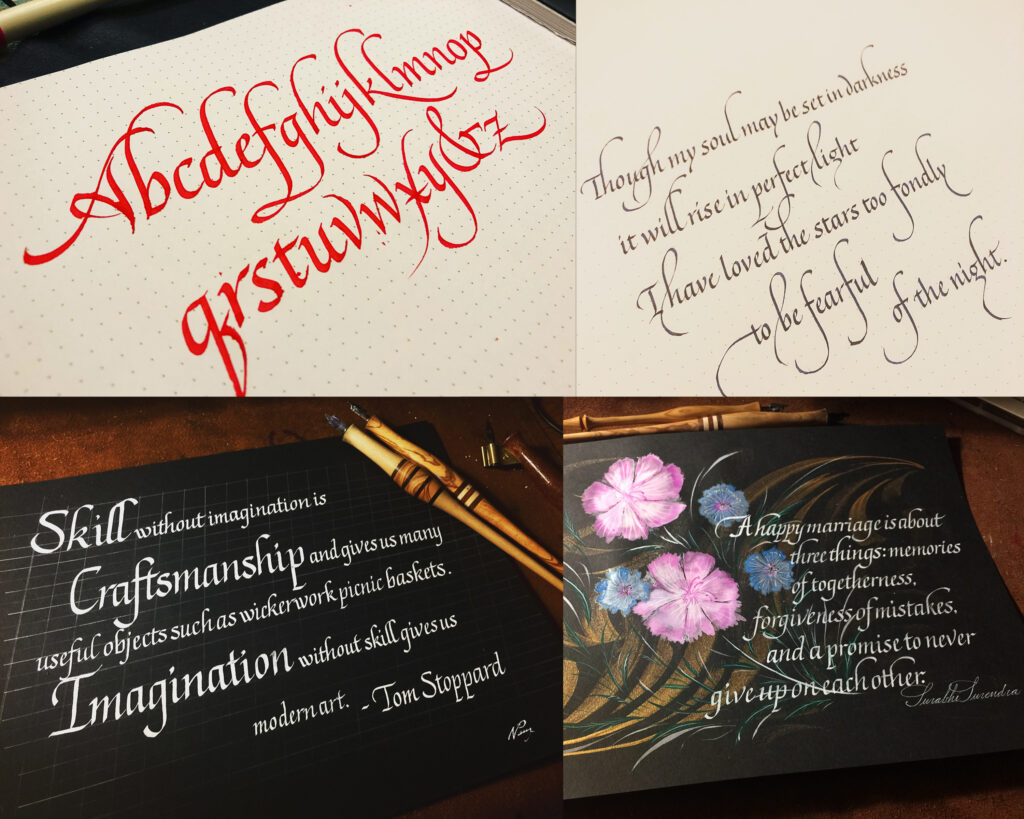 Abcdefghijklmnop
qrstuvwxy&z
Though my soul may be set in darkness
it will rise in perfect light
I have loved the stars too fondly
to be fearful
of the night.
Skill without imagination is
Craftsmanship and gives us many
useful objects such as wickerwork picnic baskets.
Imagination without skill gives us
modern art. - Tom Stoppard
A happy marriage is about
three things: memories
of togetherness,
forgiveness of mistakes,
and a promise to never
give up on each other.
Surabhi Surendra